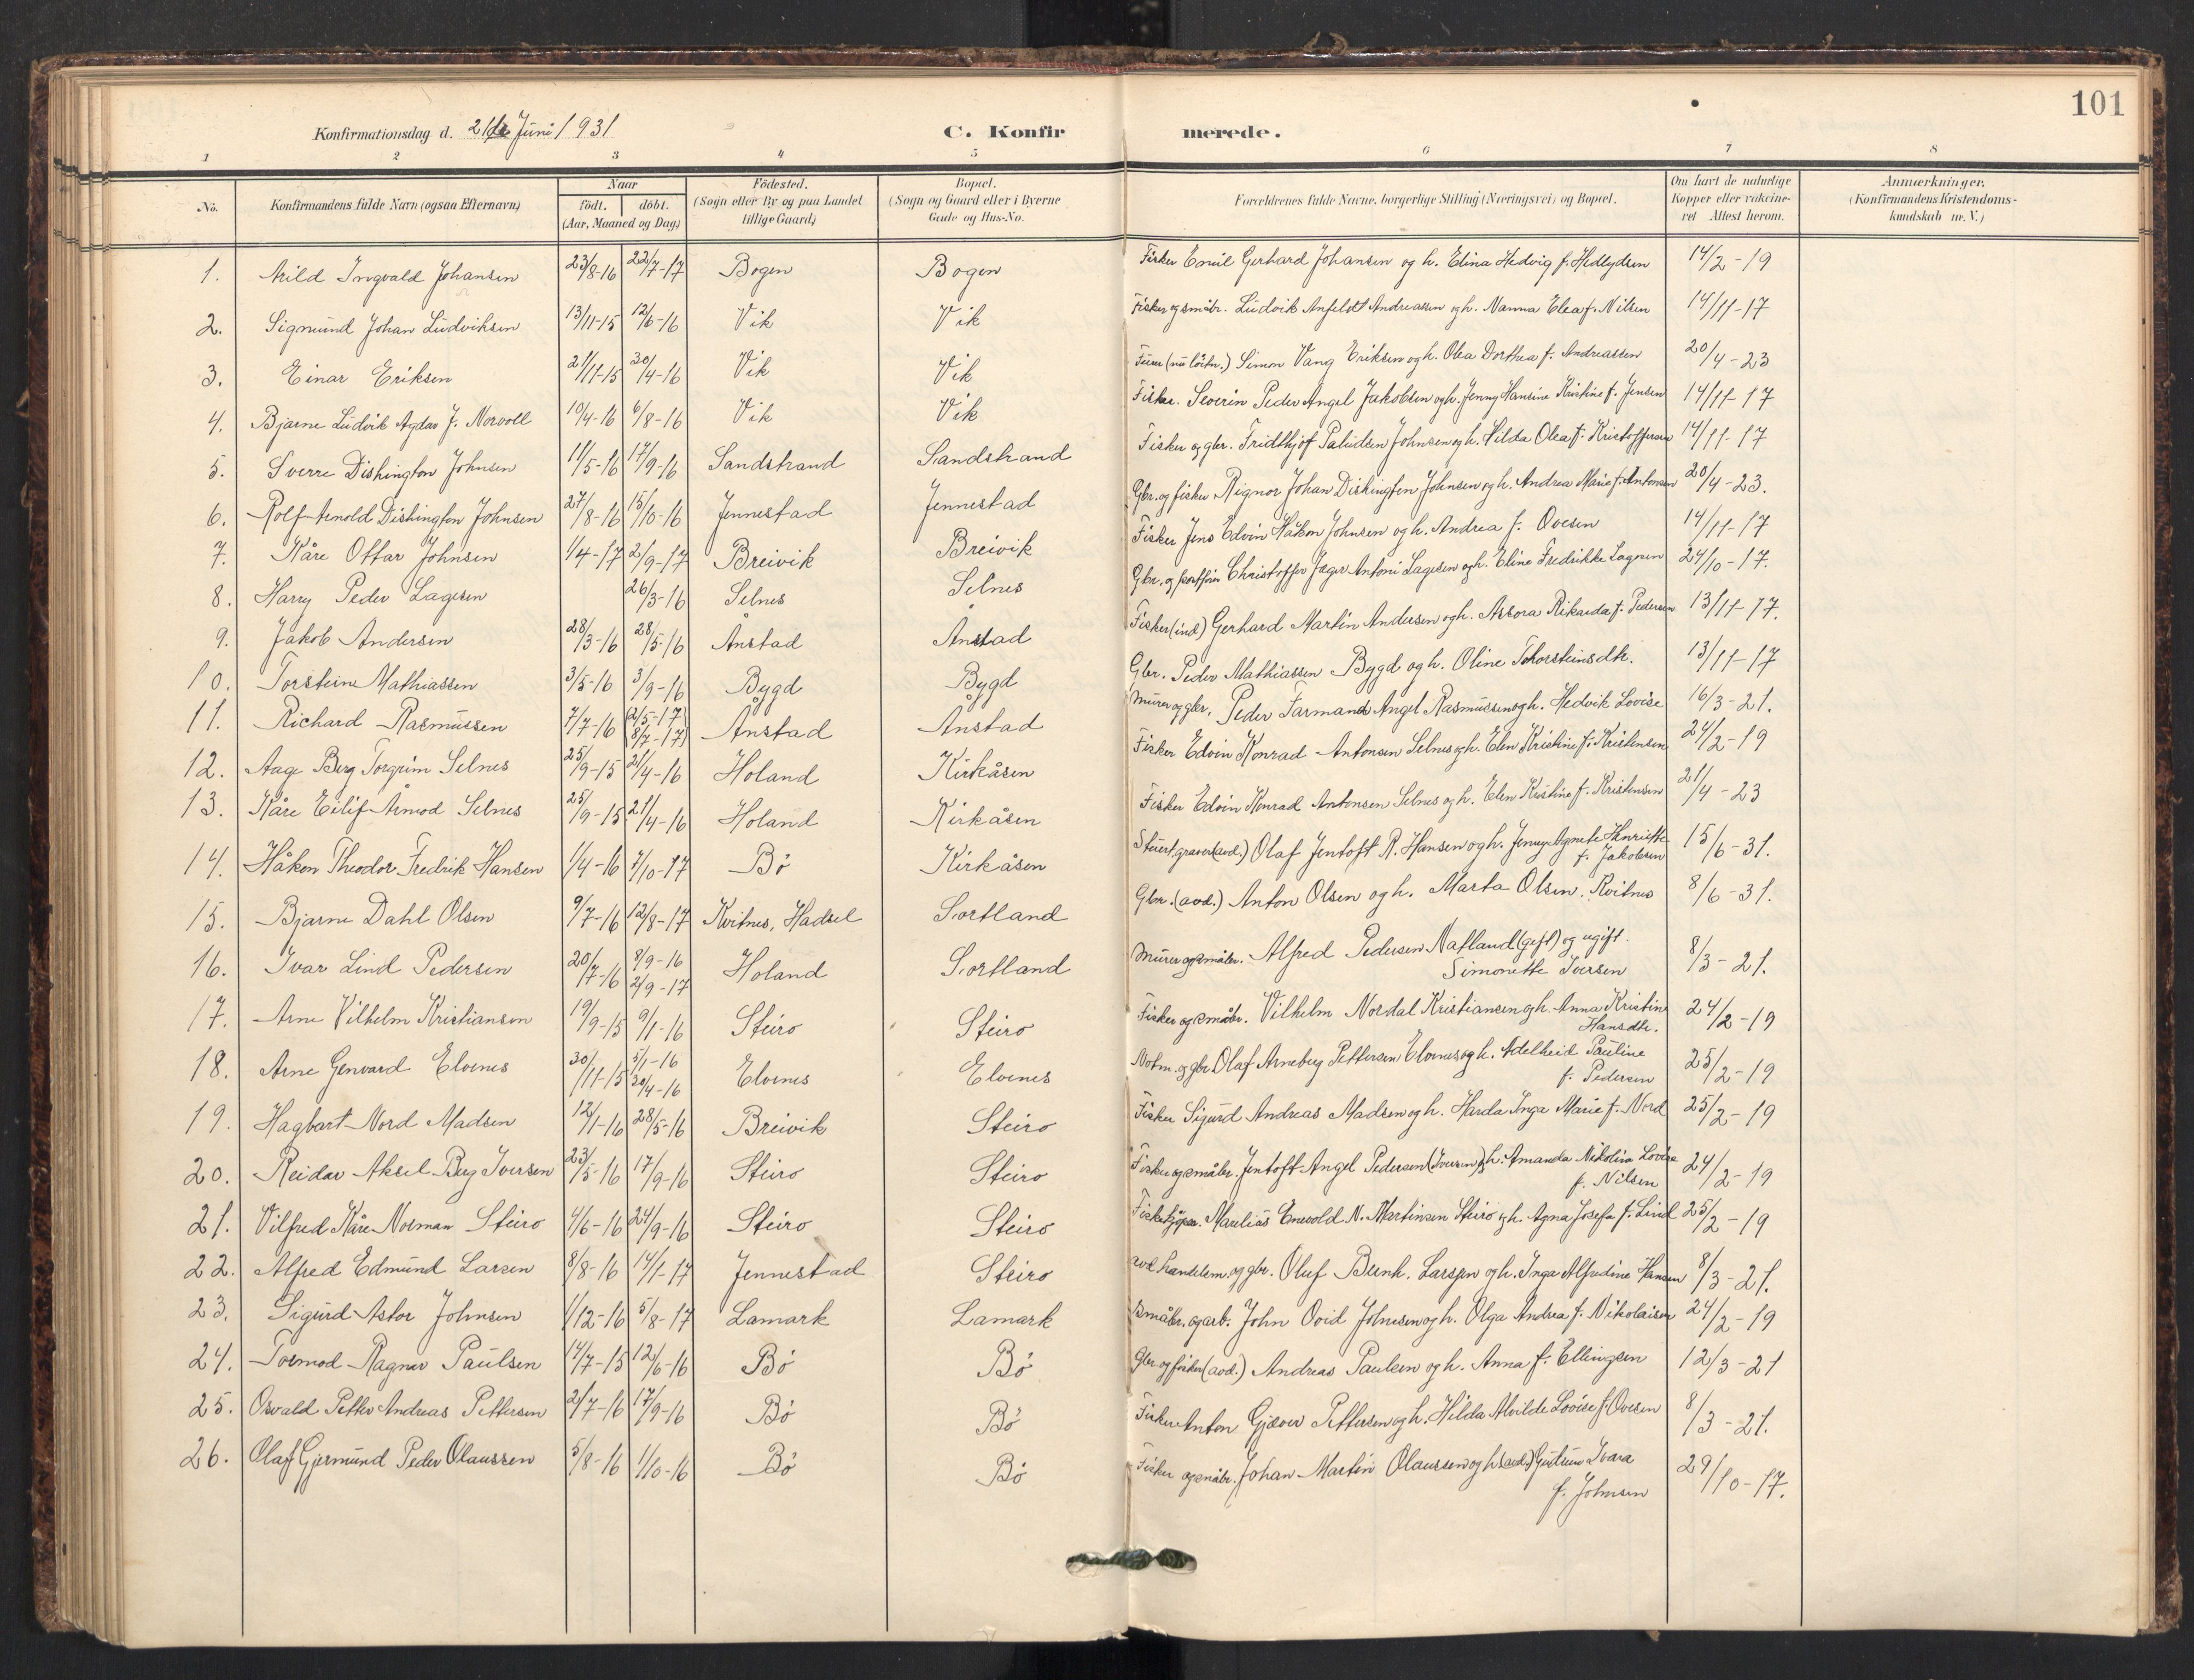 101
Konfirmationsdag d. 21de Juni 1931
C. Konfirmerede.
1 2 3 4 5 6 7 8
No.
Konfirmandens fulde Navn (ogsaa Efternavn)
Naar
Födt. döbt.
(Aar, Maaned og Dag)
Födested.
(Sogn eller By og paa Landet
tillige Gaard)
Bopæl.
(Sogn og Gaard eller i Byerne
Gade og Hus-No.
Forældrenes fulde Navne, borgerlige Stilling (Næringsvei) og Bopæl.
Om havt de naturlige
Kopper eller vakcine-
ret Attest herom.
Anmærkninger.
(Konfirmandens Kristendoms-
kundskab m. V.)
1. Arild Ingvald Johansen 23/8-16 22/7-17 Bogen Bogen Fisker Emil Gerhard Johansen og h. Elina Hedvig f. Hedlydsen 14/2-19
2. Sigmund Johan Ludviksen 13/11-15 12/6-16 Vik Vik Fisker og småbr. Ludvik Anfeldt Andreassen og h. Nanna Elea f. Nilsen 14/11-17
3. Einar Eriksen 21/11-15 30/4-16 Vik Vik Simon Vang Eriksen og h. Olea Dorthea f. Andreassen 20/4-23
4. Bjarne Ludvik Agdar J. Norvoll 10/4-16 6/8-16 Vik Vik Fisker. Severin Peder Angel Jakobsen og h. Jenny Hansine Kristine f. Jensen 14/11-17
5. Sverre Dishington Johnsen 11/5-16 17/9-16 Sandstrand Sandstrand Fisker og gbr. Fridthjof Paludsen Johnsen og h. Hilda Olea f. Kristoffersen 14/11-17
6. Rolf Arnold Dishington Johnsen 27/8-16 15/10-16 Jennestad Jennestad Gbr. og fisker Rignor Johan Dishington Johnsen og h. Andrea Marie f. Antonsen 20/4-23.
7. Kåre Ottar Johnsen 1/4-17 2/9-17 Breivik Breivik Fisker Jens Edvin Håkon Johnsen og h. Andrea f. Ovesen 14/11-17
8. Harry Peder Lagesen 26/3-16 Selnes Selnes Gbr. og Christoffer Jæger Antoni Lagesen og h. Eline Fredrikke Lagesen 24/10-17.
9. Jakob Andersen 28/3-16 28/5-16 Anstad Anstad Fisker (ind) Gerhard Martin Andersen og h. Asbora Rikarda f. Pedersen 13/11-17.
10. Torstein Mathiassen 3/5-16 3/9-16 Bygd Bygd Gbr. Peder Mathiassen Bygd og h. Oline Thorsteinsdtr. 13/11-17
11. Richard Rasmussen 7/7-16 (2/5-17) (8/7-17) Ånstad Ånstad Murer og gbr. Peder Farmand Angel Rasmussen og h. Hedvik Lovise 16/3-21.
12. Aage Berg Torgrim Selnes 25/9-15 21/4-16 Holand Kirkåsen Fisker Edvin Konrad Antonsen Selnes og h. Elen Kristine f. Kristensen 24/2-19
13. Kåre Eilif Armod Selnes 25/9-15 21/4-16 Holand Kirkåsen Fisker Edvin Konrad Antonsen Selnes og h. Elen Kristine f. Kristensen 21/4-23
14. Håkon Theodor Fredrik Hansen 1/4-16 7/10-17 Bö Kirkåsen Olaf Jentoft R. Hansen og h. Jenny Agnete Henriette
f. Jakobsen 15/6-31.
15. Bjarne Dahl Olsen 9/7-16 12/8-17 Kvitnes, Hadsel Sortland Gbr. (avd.) Anton Olsen og h. Marta Olsen. Kvitnes 8/6-31.
16. Ivar Lind Pedersen 20/7-16 8/9-16 2/9-17 Holand Sortland Murer og småbr. Alfred Pedersen Natland (gift) og ugift.
Simonette Iversen 8/3-21.
17. Arne Vilhelm Kristiansen 19/9-15 9/1-16 Steiro Steiro Fisker og småbr. Vilhelm Nordal Kristiansen og h. Anna Kristine
Hansdtr. 24/2-19
18. Arne Genvard Elvenes 30/11-15 5/1-16 30/4-16 Elvenes Elvenes Notm. og gbr. Olaf Arneberg Pettersen Elvenes og h. Adelheid Pauline
f. Pedersen 25/2-19
19. Hagbart Nord Madsen 12/1-16 28/5-16 Breivik Steiro Fisker Sigurd Andreas Madsen og h. Harda Inga Marie f. Nord 25/2-19
20. Reidar Aksel Berg Iversen 23/5-16 17/9-16 Steiro Steiro Fisker og småbr. Jentoft Angel Pedersen (Iversen) og h. Amanda Nikolina Lovise
f. Nilsen 24/2-19
21. Vilfred Kåre Norman Steiro 4/6-16 24/9-16 Steiro Steiro Fiskekjöper. Marelius Enevold N. Martinsen Steiro og h. Agna Josefa f. Lind 25/2-19
22. Alfred Edmund Larsen 8/8-16 14/1-17 Jennestad Steiro avd handelsm. og gbr. Oluf Bernh. Larssen og h. Inga Alfredine Hansen 8/3-21.
23. Sigurd Astor Johnsen 1/12-16 5/8-17 Lamark Lamark Småbr. og arb. John Ovid Johnsen og h. Olga Andrea f. Nikolaisen 24/2-19
24. Tormod Ragnar Paulsen 14/7-15 12/6-16 Bö Bö Gbr og fisker (avd.) Andreas Paulsen og h. Anna f. Ellingsen 12/3-21
25. Osvald Petter Andreas Pettersen 2/7-16 17/9-16 Bö Bö Fisker Anton Gjæver Pettersen og h. Hilda Alvilde Lovise f. Ovesen 8/3-21.
26. Olaf Gjermund Peder Olaussen 5/8-16 1/10-16 Bö Bö Fisker og småbr. Johan Martin Olaussen og h. (avd.) Gudrun Ivara
f. Johnsen 29/10-17.